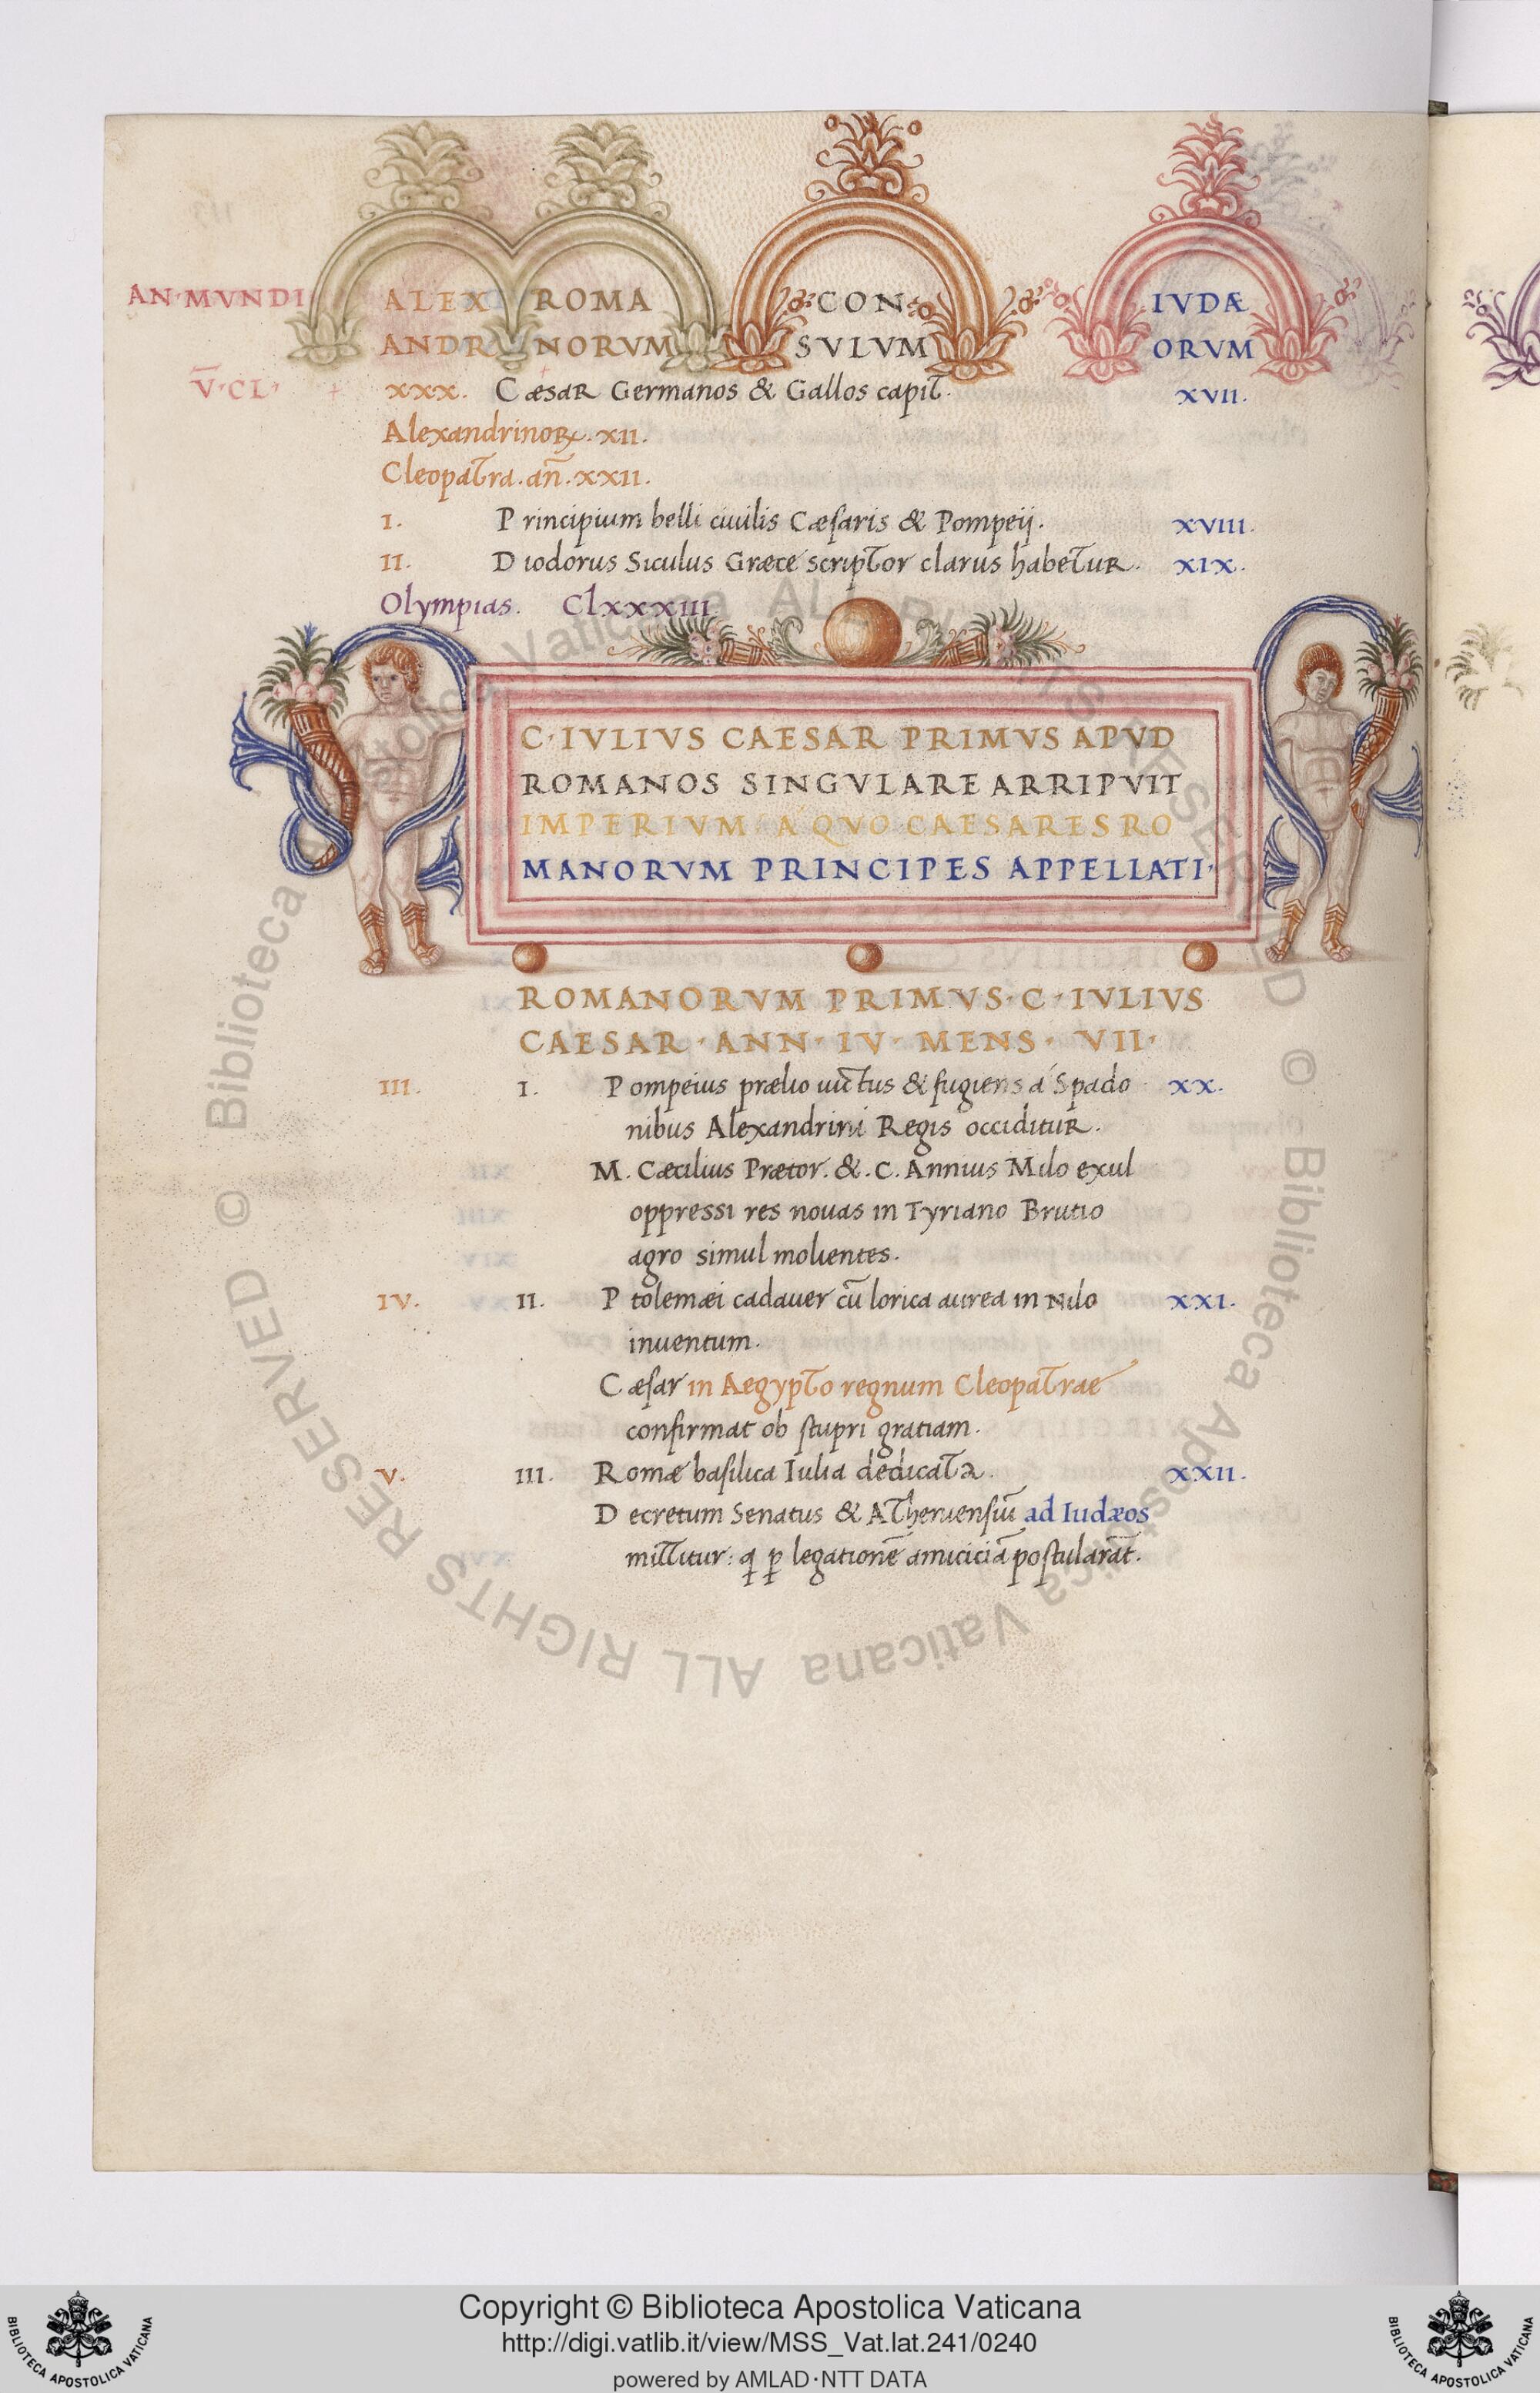 AN·MVNDI ALEX ROMA CON IVDÆ
ANDR NORVM SVLVM ORVM
V̅·CL· XXX. Cæsar Germanos & Gallos capit. XVII.
Alexandrinoꝝ. XII.
Cleopatra. an̄. XXII.
I. Principium belli ciuilis Cæsaris & Pompeij. XVIII.
II. Diodorus Siculus Græce scriptor clarus habetur. XIX.
Olympias. Clxxxiii.
C·IVLIVS CAESAR PRIMVS APVD
ROMANOS SINGVLARE ARRIPVIT
IMPERIVM A QVO CAESARES RO
MANORVM PRINCIPES APPELLATI·
ROMANORVM PRIMVS·C·IVLIVS
CAESAR·ANN·IV·MENS·VII·
III. I. Pompeius prælio uictus & fugiens á Spado XX.
nibus Alexandrini Regis occiditur.
M. Cæcilius Prætor. &. C. Annius Milo exul
oppressi res nouas in Tyriano Brutio
agro simul molientes.
IV. II. Ptolemæi cadauer cū lorica aurea in Nilo XXI.
inuentum.
Cæsar in Aegypto regnum Cleopatrae
confirmat ob stupri gratiam.
V. III. Romæ basilica Iulia dedicata. XXII.
Decretum Senatus & Atheniensiū ad Iudæos
mittitur: q ꝑ legationē amiciciā postularāt.
© Biblioteca Apostolica Vaticana ALL RIGHTS RESERVED © Biblioteca Apostolica Vaticana ALL RIGHTS RESERVED
Copyright © Biblioteca Apostolica Vaticana
http://digi.vatlib.it/view/MSS_Vat.lat.241/0240
powered by AMLAD·NTT DATA
BIBLIOTECA APOSTOLICA VATICANA
BIBLIOTECA APOSTOLICA VATICANA